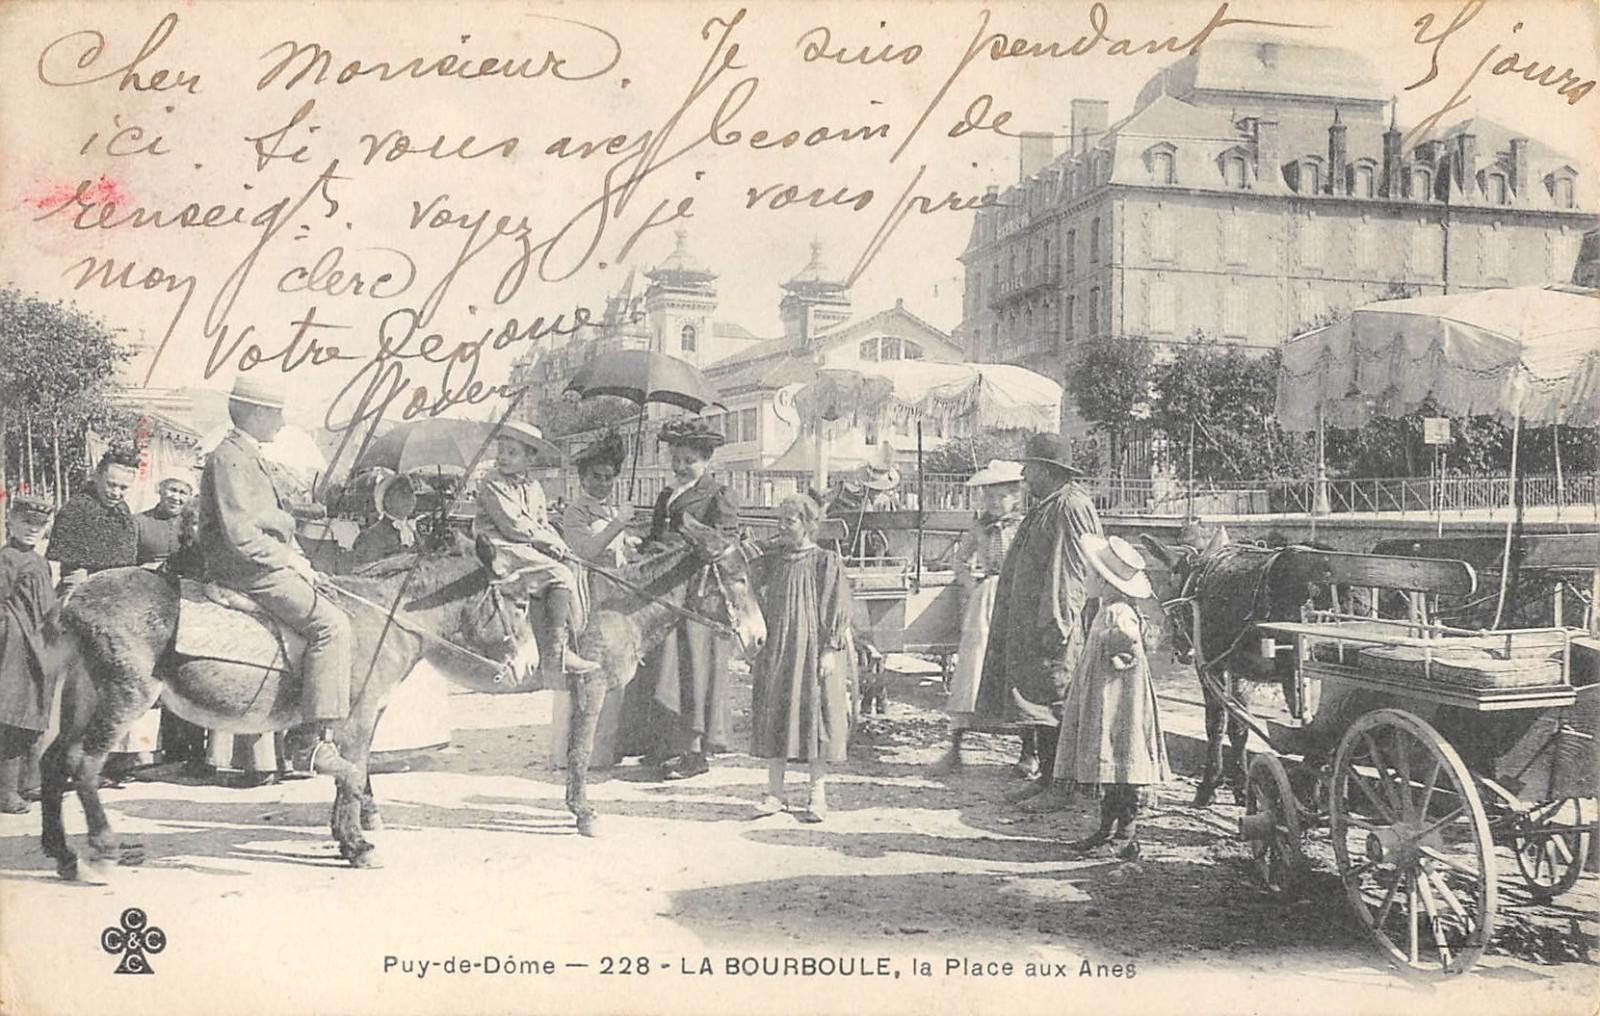 Cher Monsieur. Je suis pendant jours
ici. Si vous avez besoin de
renseigts. voyez je vous prie
mon clerc
Votre
HOTEL
C C & C C
Puy-de-Dôme — 228 - LA BOURBOULE, la Place aux Anes